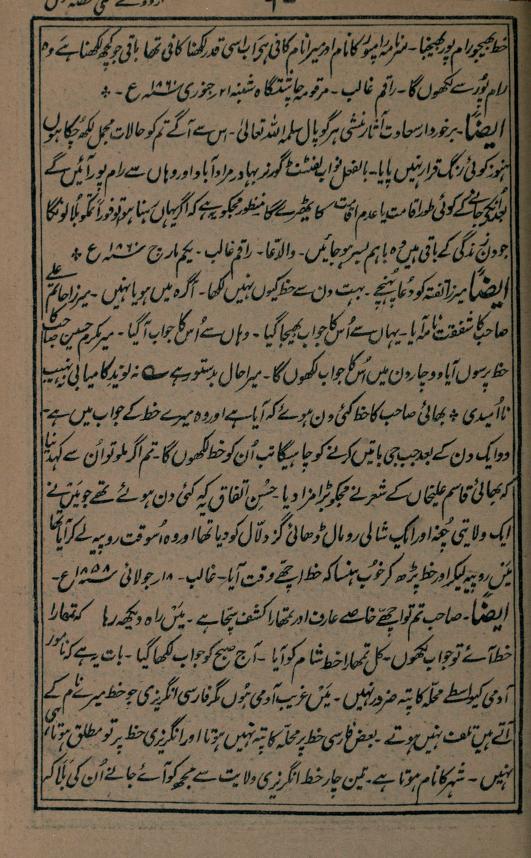 خط بھیجو رامپور بھیجنا۔ سرنامہ رامپور کا نام اور میرا نام کافی ہے اب اسی قدر لکھنا کافی تھا باقی جو کچھ لکھنا ہے وہ
رام پُور سے لکھوں گا۔ راقم غالب۔ مرقومہ چاشتگاہ شنبہ ۲۱ جنوری ۱۸۶۰ء ع۔
ایضاً۔ برخوردار سعادت آثار منشی ہرگوپال سلمہ اللہ تعالیٰ۔ اس سے آگے تم کو حالات مجمل لکھ چکا ہوں
ہنوز کوئی رنگ قرار نہیں پایا۔ بالفعل نواب لفٹنٹ گورنر بہادر مراد آباد اور وہاں سے رام پور آئیں گے
بعد اُنکے جانے کے کوئی طور اقامت یا عدم اقامت کا ٹھیرے گا منظور مجکو یہ ہے کہ اگر یہاں رہنا ہوا تو فوراً تمکو بُلا لونگا
جو دن زندگی کے باقی ہیں وہ باہم بسر ہو جائیں۔ والدعا۔ راقم غالب۔ یکم مارچ ۱۸۶۰ء ع
ایضاً میرزا تفتہ کو دعا پہنچے۔ بہت دن سے خط کیوں نہیں لکھا۔ آگرہ میں ہو یا نہیں۔ میرزا حاتم علی
صاحب کا شفقت نامہ آیا۔ یہاں سے اُس کا جواب بھیجا گیا۔ وہاں سے اُس کا جواب آ گیا۔ میر مکرم حسین صاحب کا
خط پرسوں آیا دو چار دن میں اُس کا جواب لکھوں گا۔ میرا حال بدستور ہے نہ نوید کامیابی نہ نہیب
نا اُمیدی بھائی صاحب کا خط کئی دن ہوئے کہ آیا ہے اور وہ میرے خط کے جواب میں ہے۔
دو ایک دن کے بعد جب جی باتیں کرنے کو چاہیگا تب اُن کو خط لکھوں گا۔ تم اگر ملو تو اُن سے کہدینا
کہ بھائی قاسم علیخاں کے شعر نے مجکو بڑا مزا دیا حسن اتفاق یہ کہ کئی دن ہوئے تھے جو میں نے
ایک ولایتی چغہ اور ایک شالی رومال ڈھائی گز دلّال کو دیا تھا اور وہ اُسوقت روپیہ لے کر آیا تھا
میں روپیہ لیکر اور خط پڑھ کر خوب ہنسا کہ خط اچھے وقت آیا۔ غالب۔ ۱۸ جولائی ۱۸۵۸ء ع۔
ایضاً۔ صاحب تم تو اچھے خاصے عارف اور تمھارا کشف سچا ہے۔ میں راہ دیکھ رہا کہ تمھارا
خط آئے تو جواب لکھوں۔ کل تمھارا خط شام کو آیا۔ آج صبح کو جواب لکھا گیا۔ بات یہ ہے کہ نامور
آدمی کیواسطے محلہ کا پتہ ضرور نہیں۔ میں غریب آدمی ہوں مگر فارسی انگریزی جو خط میرے نام کے
آتے ہیں تلف نہیں ہوتے۔ بعض فارسی خط پر محلہ کا پتہ نہیں ہوتا اور انگریزی خط پر تو مطلق ہوتا ہی
نہیں۔ شہر کا نام ہوتا ہے۔ تین چار خط انگریزی ولایت سے مجھ کو آئے جانے اُن کی بلا کہ